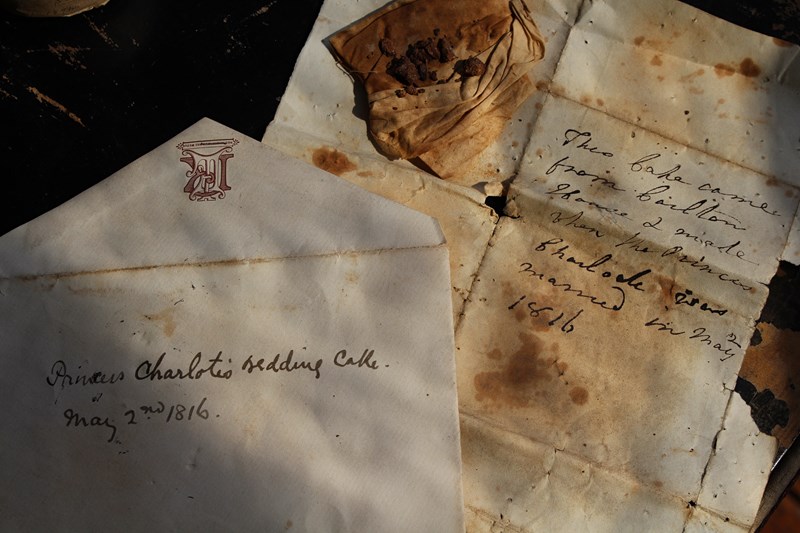 Princess Charlotis Wedding Cake.
May 2nd 1816.
This Cake came
from Carlton
House & made
when the Princess
Charlotte was
married in May 2
1816